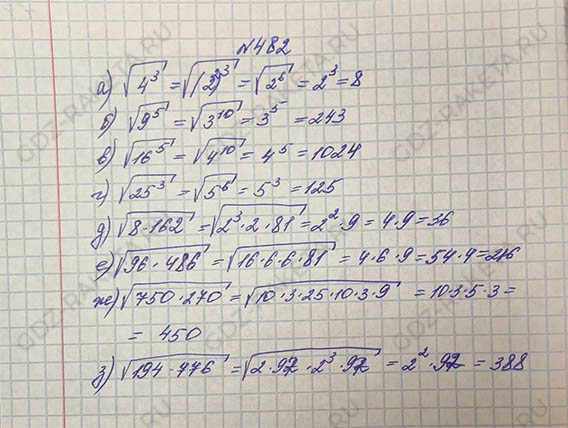 №482
а) √4³ = √(2²)³ = √2⁶ = 2³ = 8
б) √9⁵ = √3¹⁰ = 3⁵ = 243
в) √16⁵ = √4¹⁰ = 4⁵ = 1024
г) √25³ = √5⁶ = 5³ = 125
д) √8·162 = √2³·2·81 = 2²·9 = 4·9 = 36
е) √96·486 = √16·6·6·81 = 4·6·9 = 54·4 = 216
ж) √750·270 = √10·3·25·10·3·9 = 10·3·5·3 =
= 450
з) √194·776 = √2·97·2³·97 = 2²·97 = 388
GDZ-RAKETA.RU